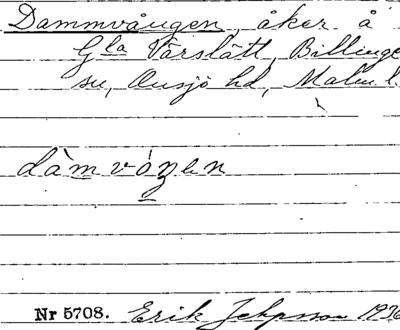 Dammvången, åker å
Gla Vårslätt, Billinge
sn, Onsjö hd, Malm. l.
dàmvóŋen
Nr 5708. Erik Jeppsson 1936